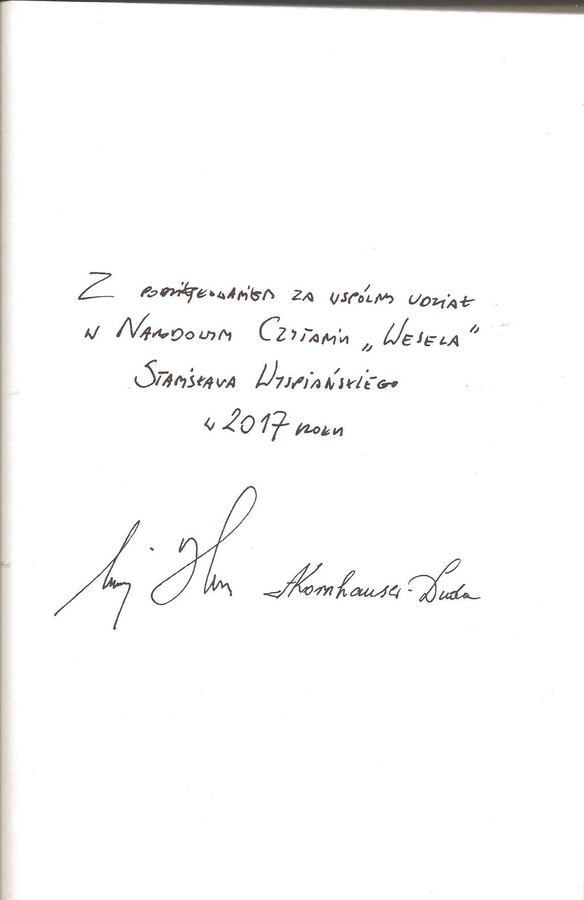 Z podziękowaniem za wspólny udział
w Narodowym Czytaniu „Wesela"
Stanisława Wyspiańskiego
w 2017 roku
AKornhauser-Duda